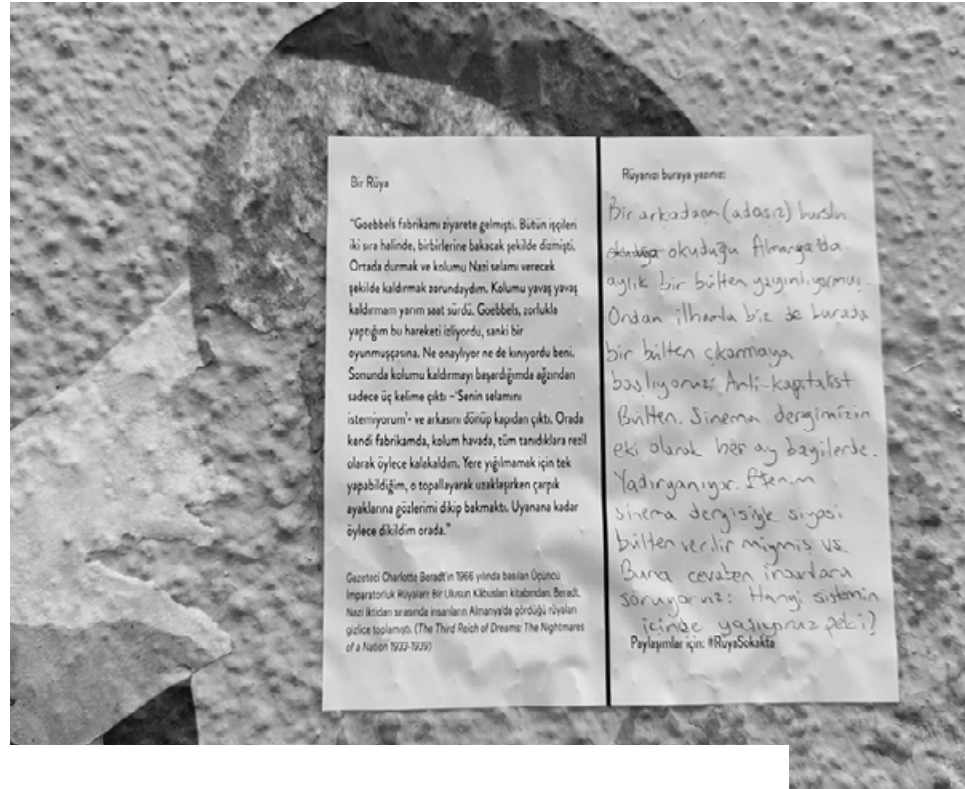 Bir Rüya
"Goebbels fabrikamı ziyarete gelmişti. Bütün işçileri
iki sıra halinde, birbirlerine bakacak şekilde dizmişti.
Ortada durmak ve kolumu Nazi selamı verecek
şekilde kaldırmak zorundaydım. Kolumu yavaş yavaş
kaldırmam yarım saat sürdü. Goebbels, zorlukla
yaptığım bu hareketi izliyordu, sanki bir
oyunmuşçasına. Ne onaylıyor ne de kınıyordu beni.
Sonunda kolumu kaldırmayı başardığımda ağzından
sadece üç kelime çıktı –'Senin selamını
istemiyorum'- ve arkasını dönüp kapıdan çıktı. Orada
kendi fabrikamda, kolum havada, tüm tanıdıklara rezil
olarak öylece kalakaldım. Yere yığılmamak için tek
yapabildiğim, o topallayarak uzaklaşırken çarpık
ayaklarına gözlerimi dikip bakmaktı. Uyanana kadar
öylece dikildim orada."
Gazeteci Charlotte Beradt'ın 1966 yılında basılan Üçüncü
İmparatorluk Rüyaları: Bir Ulusun Kâbusları kitabından. Beradt,
Nazi iktidarı sırasında insanların Almanya'da gördüğü rüyaları
gizlice toplamıştı. (The Third Reich of Dreams: The Nightmares
of a Nation 1933-1939)
Rüyanızı buraya yazınız:
Bir arkadaşın (adasız) burslu
okuduğu Almanya'da
aylık bir bülten yayınlıyormuş.
Ondan ilhamla biz de burada
bir bülten çıkarmaya
başlıyoruz: Anti-kapitalist
Bülten. Sinema dergimizin
eki olarak her ay bayilerde.
Yadırganıyor.
sinema dergisiyle siyasi
bülten verilir miymiş vs.
Buna cevaben insanlara
soruyoruz: Hangi sistemin
içinde yaşıyoruz peki?
Paylaşımlar için: #RüyaSokakta